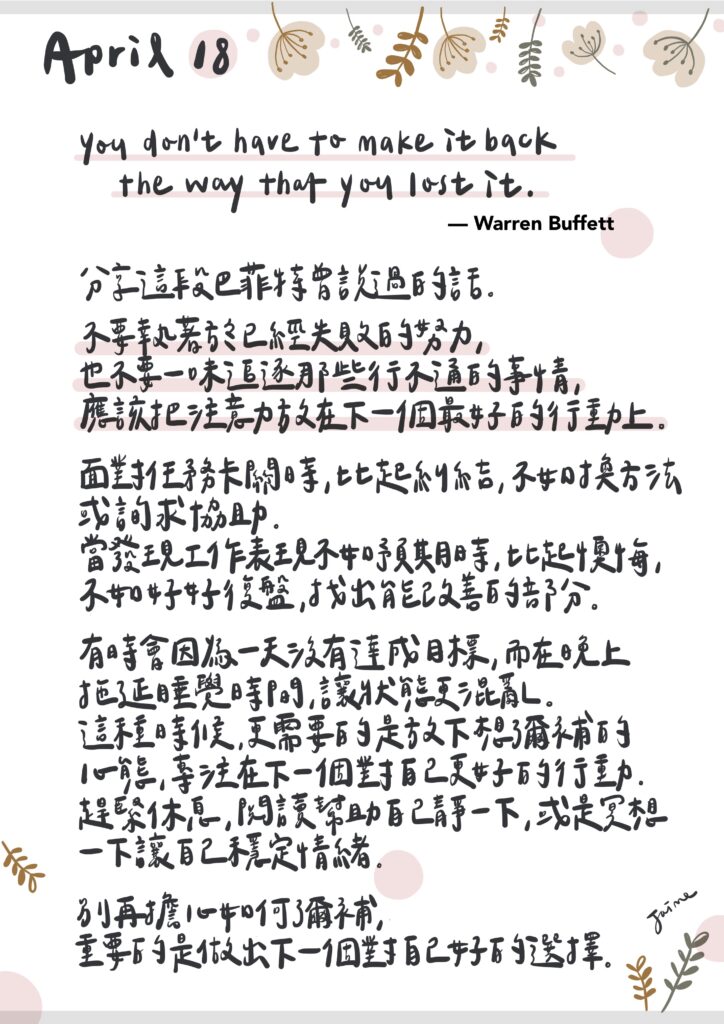 April 18
you don't have to make it back
the way that you lost it.
— Warren Buffett
分享這段巴菲特曾說過的話。
不要執著於已經失敗的努力,
也不要一味追逐那些行不通的事情,
應該把注意力放在下一個最好的行動上。
面對任務卡關時,比起糾結,不如換方法
或詢求協助.
當發現工作表現不如預期時,比起懊悔,
不如好好復盤,找出能改善的部分。
有時會因為一天沒有達成目標,而在晚上
拖延睡覺時間,讓狀態更混亂。
這種時候,更需要的是放下想彌補的
心態,專注在下一個對自己更好的行動.
趕緊休息,閱讀幫助自己靜一下,或是冥想
一下讓自己穩定情緒。
別再擔心如何彌補,
重要的是做出下一個對自己好的選擇。
Jaine